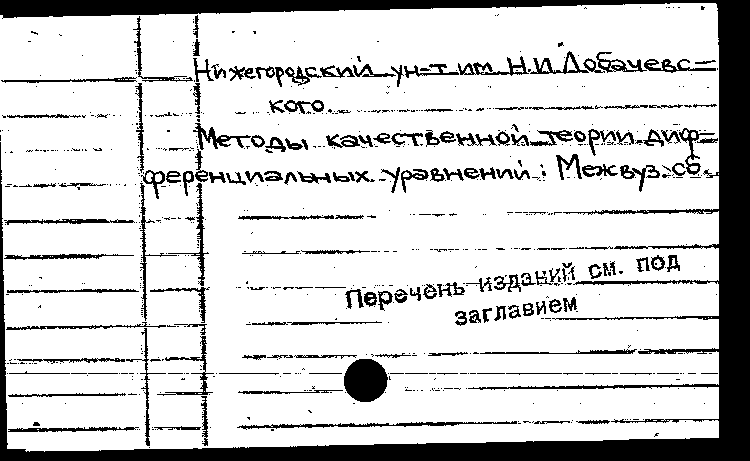 Нижегородский ун-т им Н.И Лобачевс-
кого.
Методы качественной теории диф-
ференциальных уравнений: Межвуз. сб.
Перечень изданий см. под
заглавием